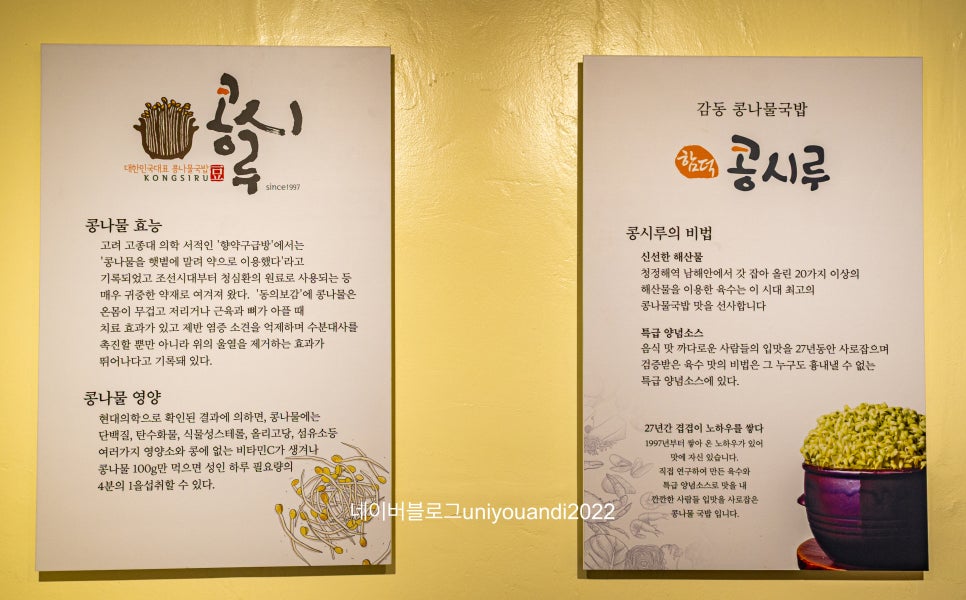 콩시루
대한민국대표 콩나물국밥
KONGSIRU
豆
since1997
콩나물 효능
고려 고종대 의학 서적인 '향약구급방'에서는
'콩나물을 햇볕에 말려 약으로 이용했다'라고
기록되었고 조선시대부터 청심환의 원료로 사용되는 등
매우 귀중한 약재로 여겨져 왔다. '동의보감'에 콩나물은
온몸이 무겁고 저리거나 근육과 뼈가 아플 때
치료 효과가 있고 제반 염증 소견을 억제하며 수분대사를
촉진할 뿐만 아니라 위의 울열을 제거하는 효과가
뛰어나다고 기록돼 있다.
콩나물 영양
현대의학으로 확인된 결과에 의하면, 콩나물에는
단백질, 탄수화물, 식물성스테롤, 올리고당, 섬유소등
여러가지 영양소와 콩에 없는 비타민C가 생겨나
콩나물 100g만 먹으면 성인 하루 필요량의
4분의 1을섭취할 수 있다.
감동 콩나물국밥
함덕
콩시루
콩시루의 비법
신선한 해산물
청정해역 남해안에서 갓 잡아 올린 20가지 이상의
해산물을 이용한 육수는 이 시대 최고의
콩나물국밥 맛을 선사합니다
특급 양념소스
음식 맛 까다로운 사람들의 입맛을 27년동안 사로잡으며
검증받은 육수 맛의 비법은 그 누구도 흉내낼 수 없는
특급 양념소스에 있다.
27년간 겹겹이 노하우를 쌓다
1997년부터 쌓아 온 노하우가 있어
맛에 자신 있습니다.
직접 연구하여 만든 육수와
특급 양념소스로 맛을 내
깐깐한 사람들 입맛을 사로잡은
콩나물 국밥 입니다.
네이버블로그uniyouandi2022